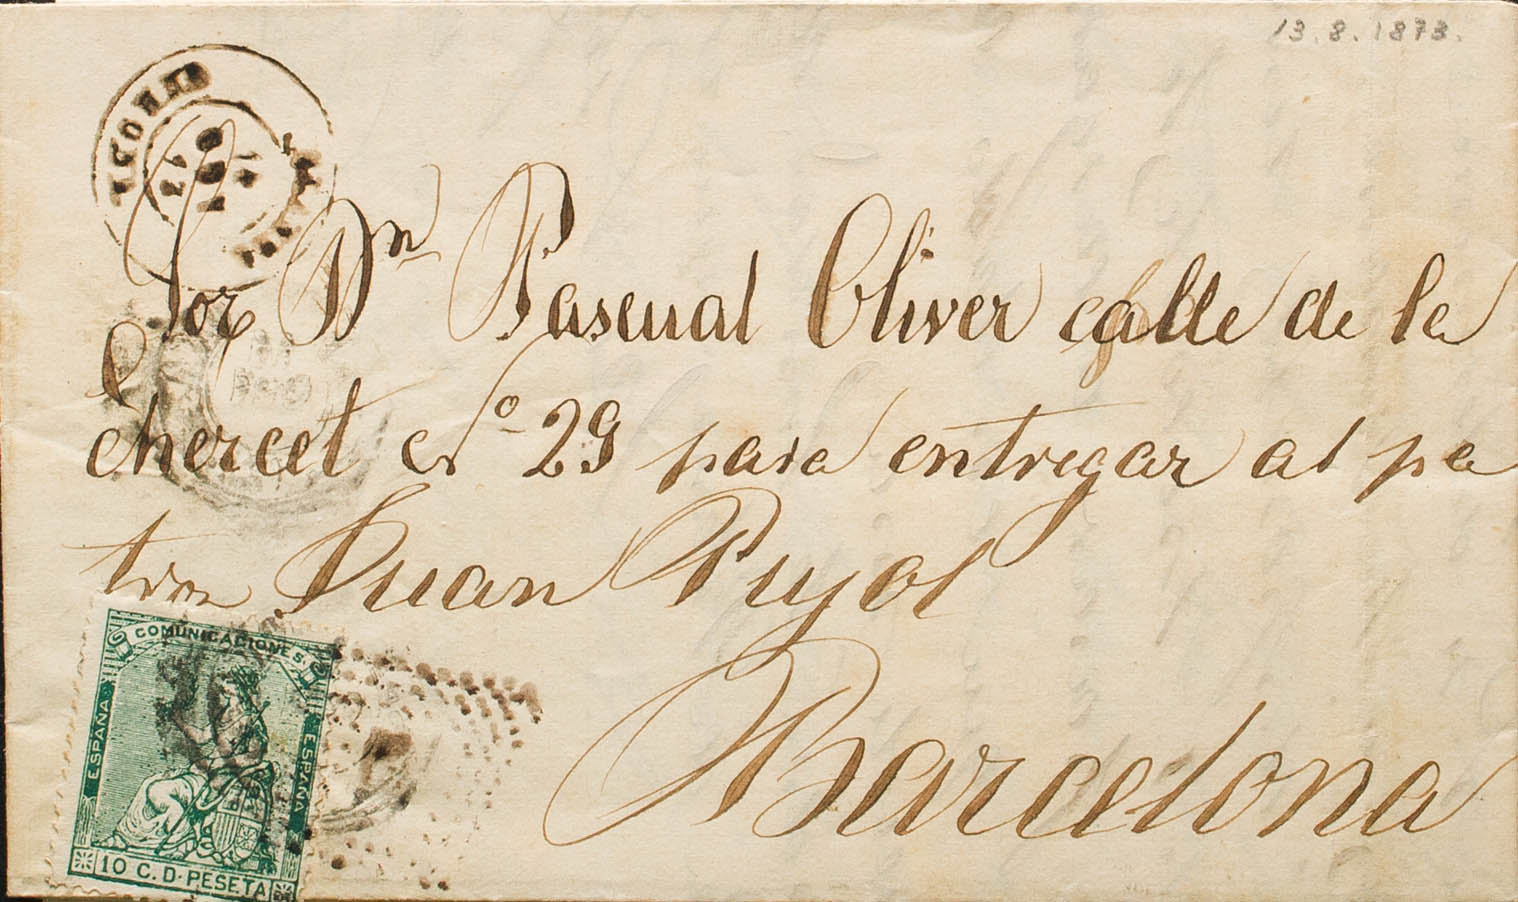 13.8.1873.
AGO
73
Sor Dn Pascual Oliver calle de la
chercet No 29 para entregar al pa
tron Juan Pujol
Barcelona
COMUNICACIONES.
ESPAÑA
ESPAÑA
10 C. D. PESETA